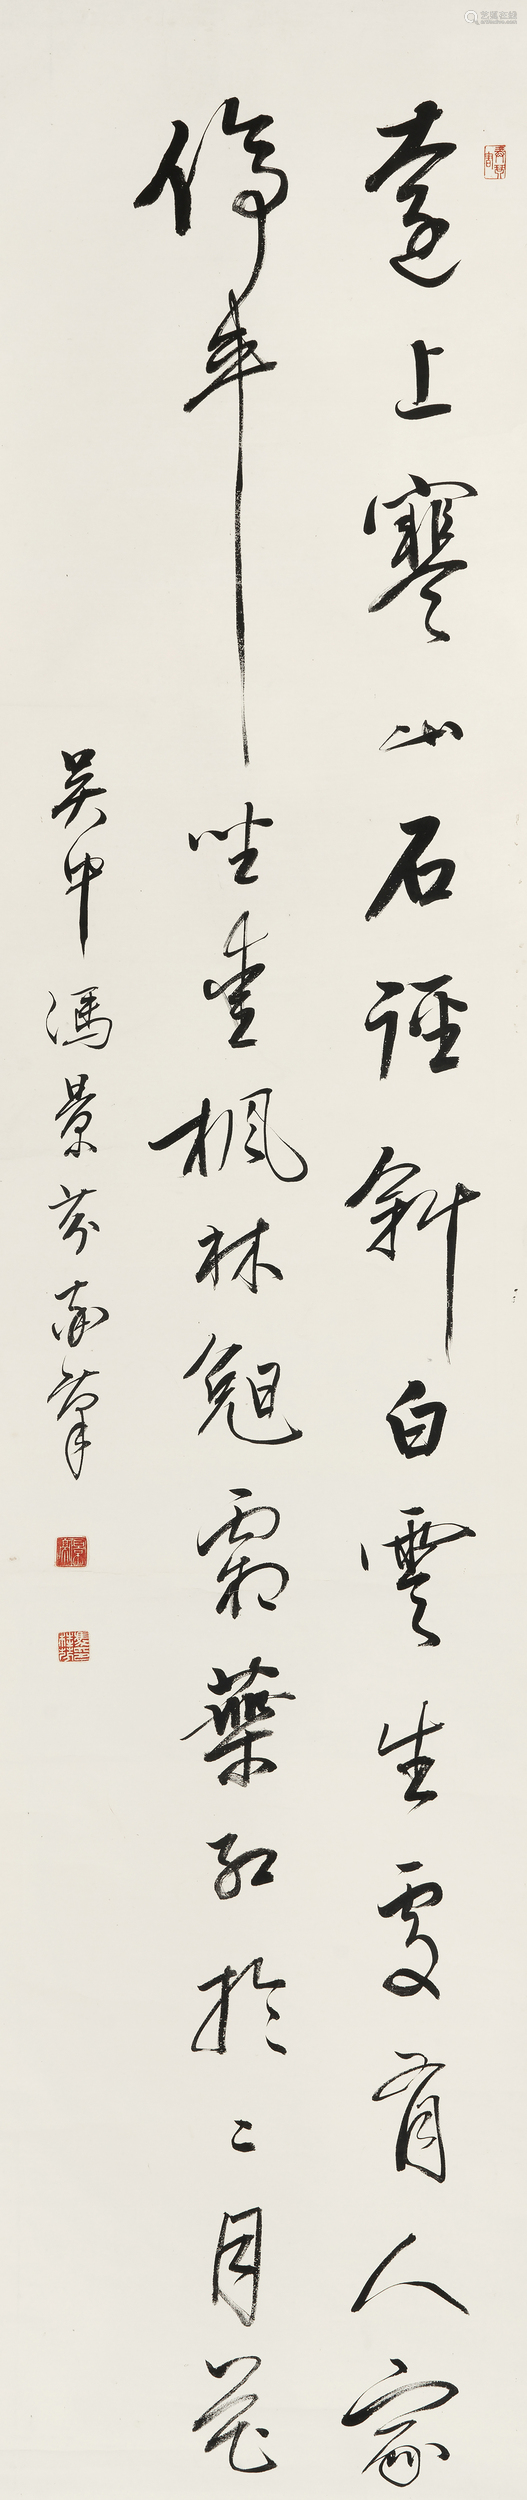 遠上寒山石径斜白雲生處有人家
停車坐愛楓林晚霜葉紅於二月花
吳中馮景芬南肇
艺狐在线